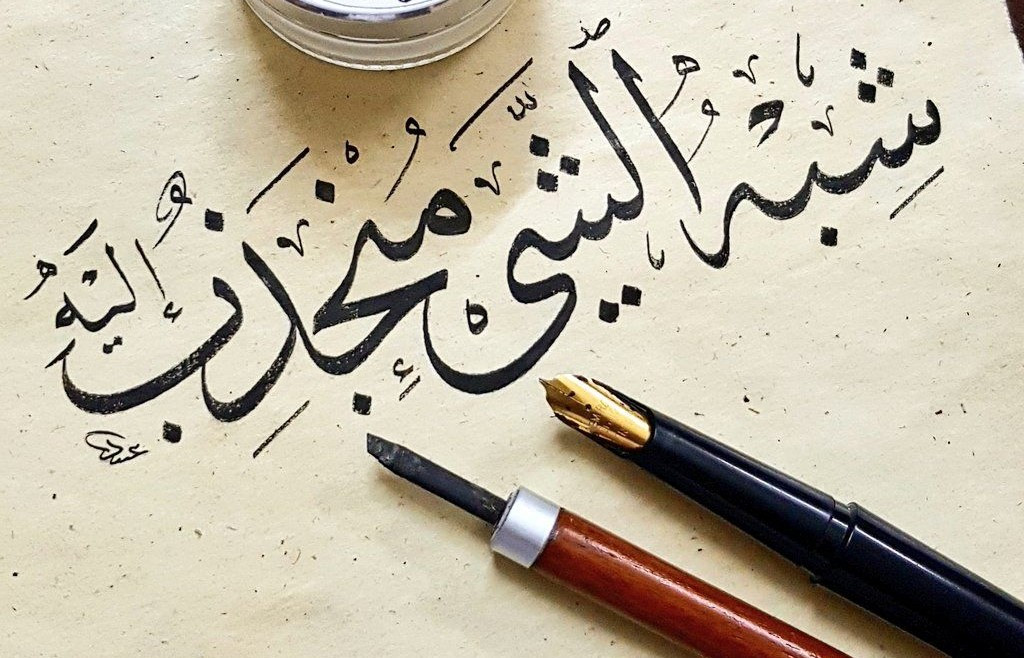 شِبْهُ الشَّيْءِ مُنْجَذِبٌ إِلَيْهِ